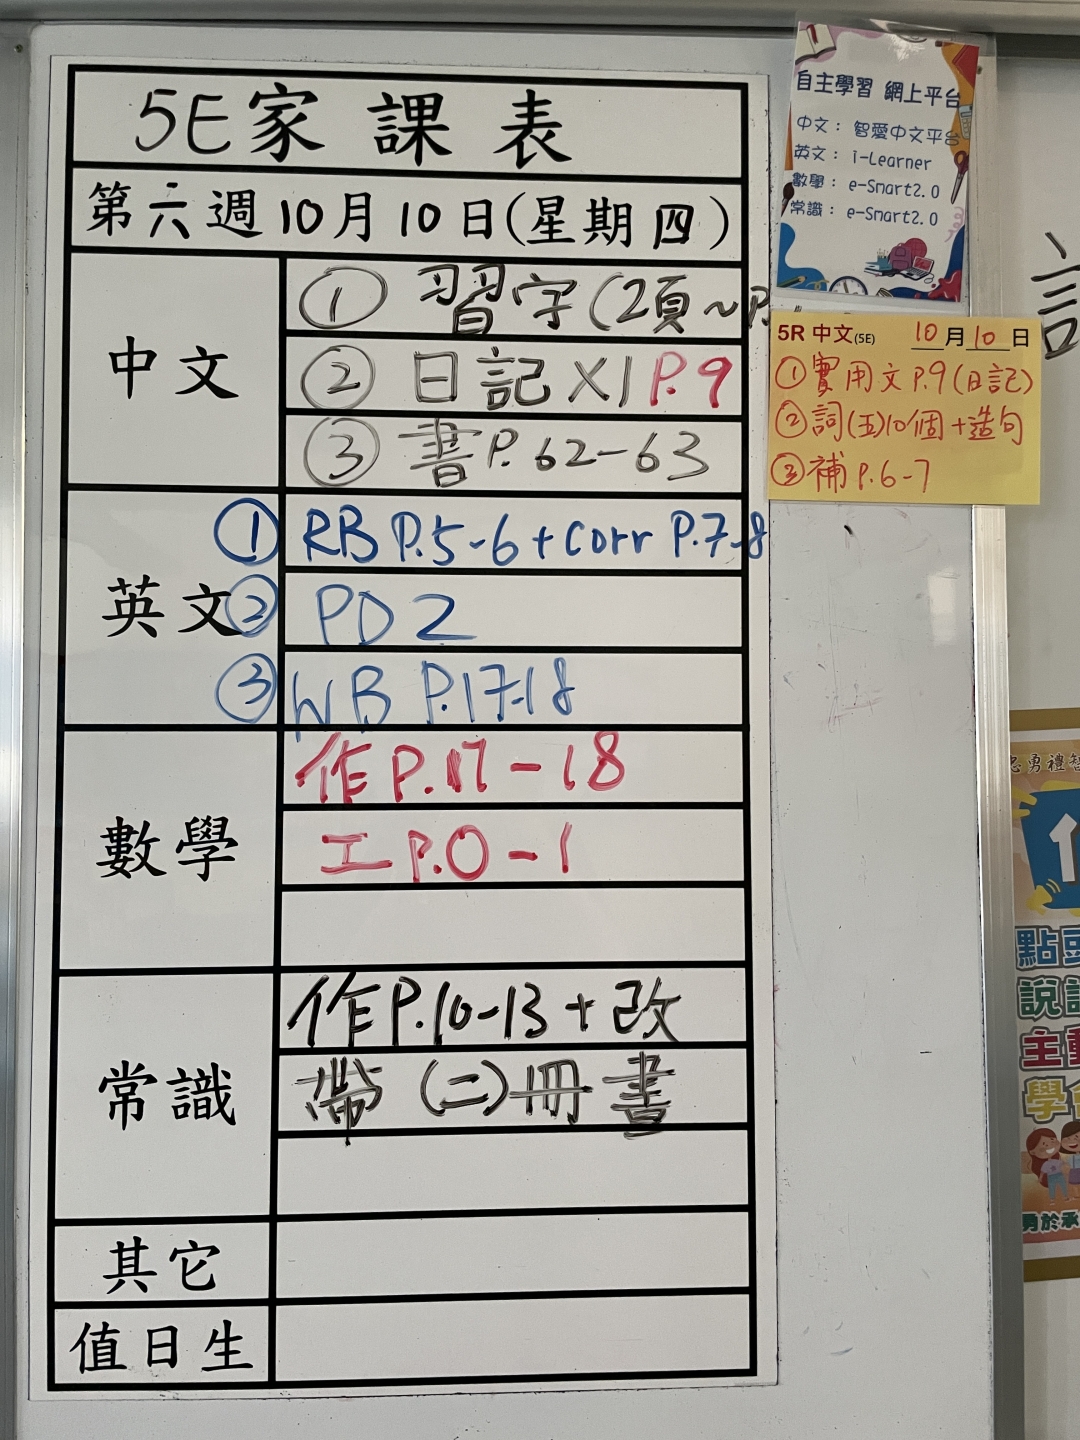 5E家課表
第六週10月10日(星期四)
中文
① 習字(2頁~P.
② 日記X1 P.9
③ 書P.62-63
英文
① RB P.5-6 + corr P.7-8
② PD 2
③ WB P.17-18
數學
作P.17-18
工P.0-1
常識
作P.10-13+改
帶(二)冊書
其它
值日生
自主學習 網上平台
中文：智愛中文平台
英文：i-Learner
數學：e-Smart2.0
常識：e-Smart2.0
5R 中文(5E) 10月10日
①實用文P.9(日記)
②詞(五)10個+造句
③補P.6-7
勇禮智
點頭
說
主動
學
勇於承